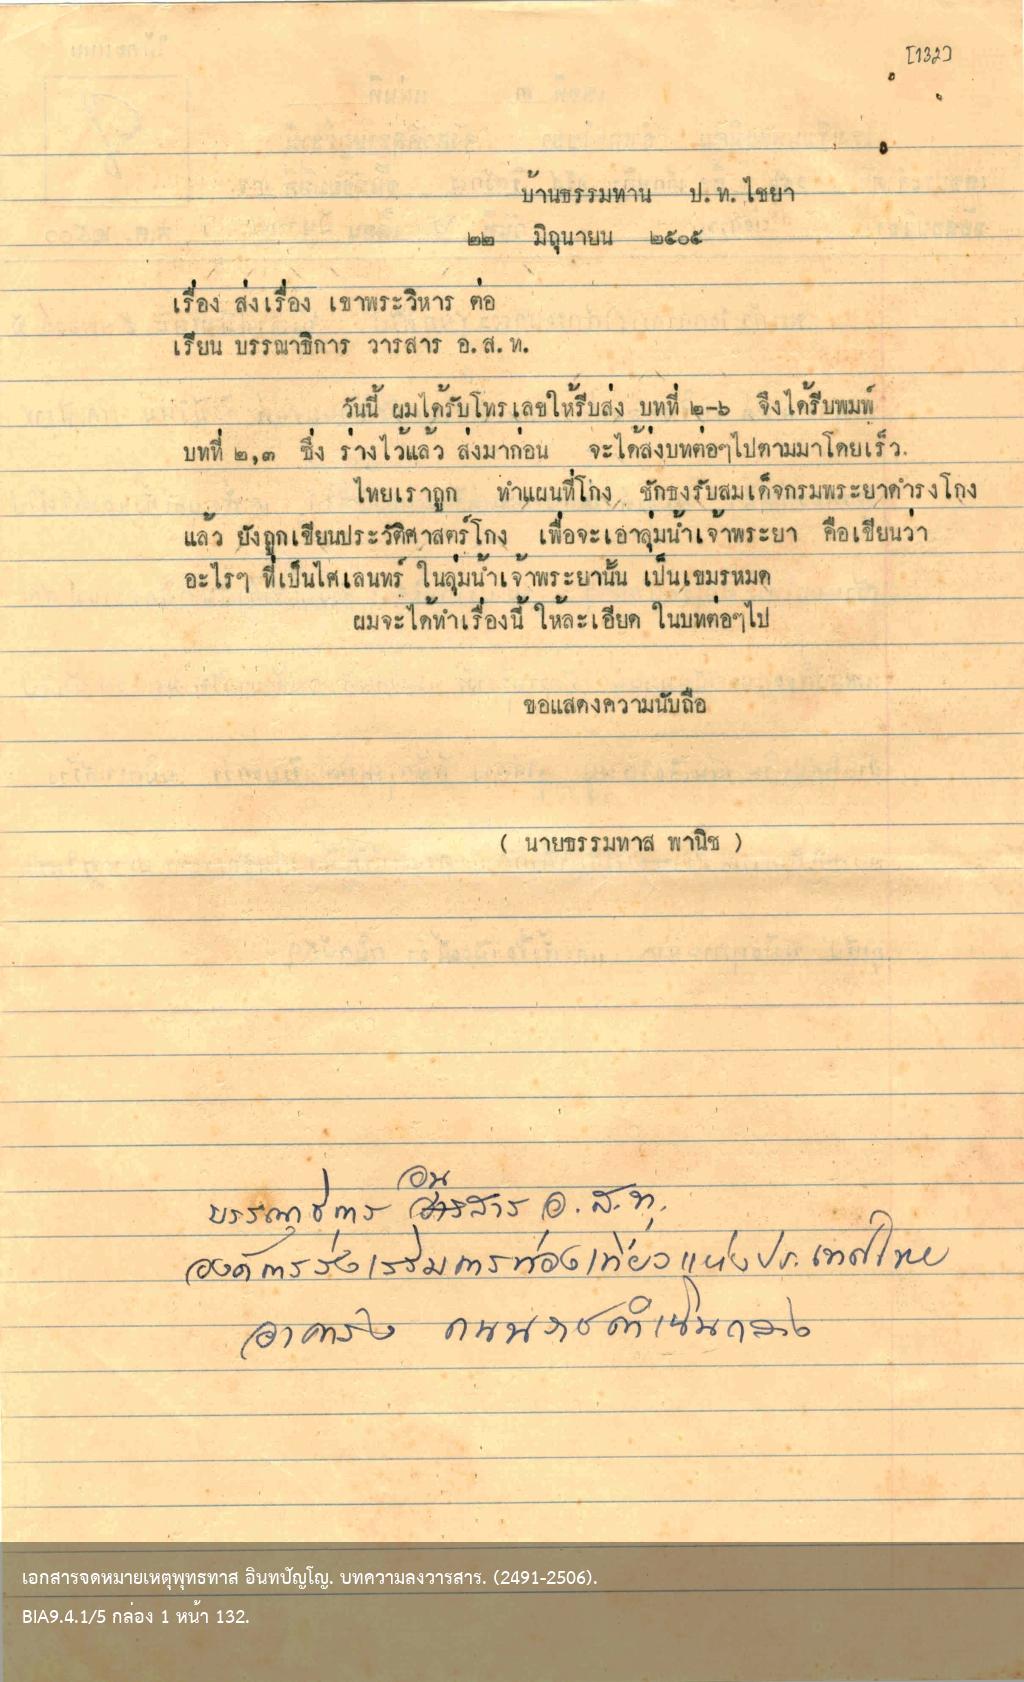 [132]
บ้านธรรมทาน ป.ท. ไชยา
๒๒ มิถุนายน ๒๕๐๕
เรื่อง ส่งเรื่อง เขาพระวิหาร ต่อ
เรียน บรรณาธิการ วารสาร อ.ส.ท.
วันนี้ ผมได้รับโทรเลขให้รีบส่ง บทที่ ๒-๖ จึงได้รีบพมพ์
บทที่ ๒,๓ ซึ่ง ร่างไว้แล้ว ส่งมาก่อน จะได้ส่งบทต่อๆไปตามมาโดยเร็ว.
ไทยเราถูก ทำแผนที่โกง ชักธงรับสมเด็จกรมพระยาดำรงโกง
แล้ว ยังถูกเขียนประวัติศาสตร์โกง เพื่อจะเอาลุ่มน้ำเจ้าพระยา คือเขียนว่า
อะไรๆ ที่เป็นไศเลนทร์ ในลุ่มน้ำเจ้าพระยานั้น เป็นเขมรหมด
ผมจะได้ทำเรื่องนี้ ให้ละเอียด ในบทต่อๆไป
ขอแสดงความนับถือ
( นายธรรมทาส พานิช )
อนุ
บรรณาธิการ สาร อ.ส.ท.
องค์การส่งเสริมการท่องเที่ยวแห่งประเทศไทย
อาคาร ถนนราชดำเนินกลาง
เอกสารจดหมายเหตุพุทธทาส อินทปัญโญ. บทความลงวารสาร. (2491-2506).
BIA9.4.1/5 กล่อง 1 หน้า 132.